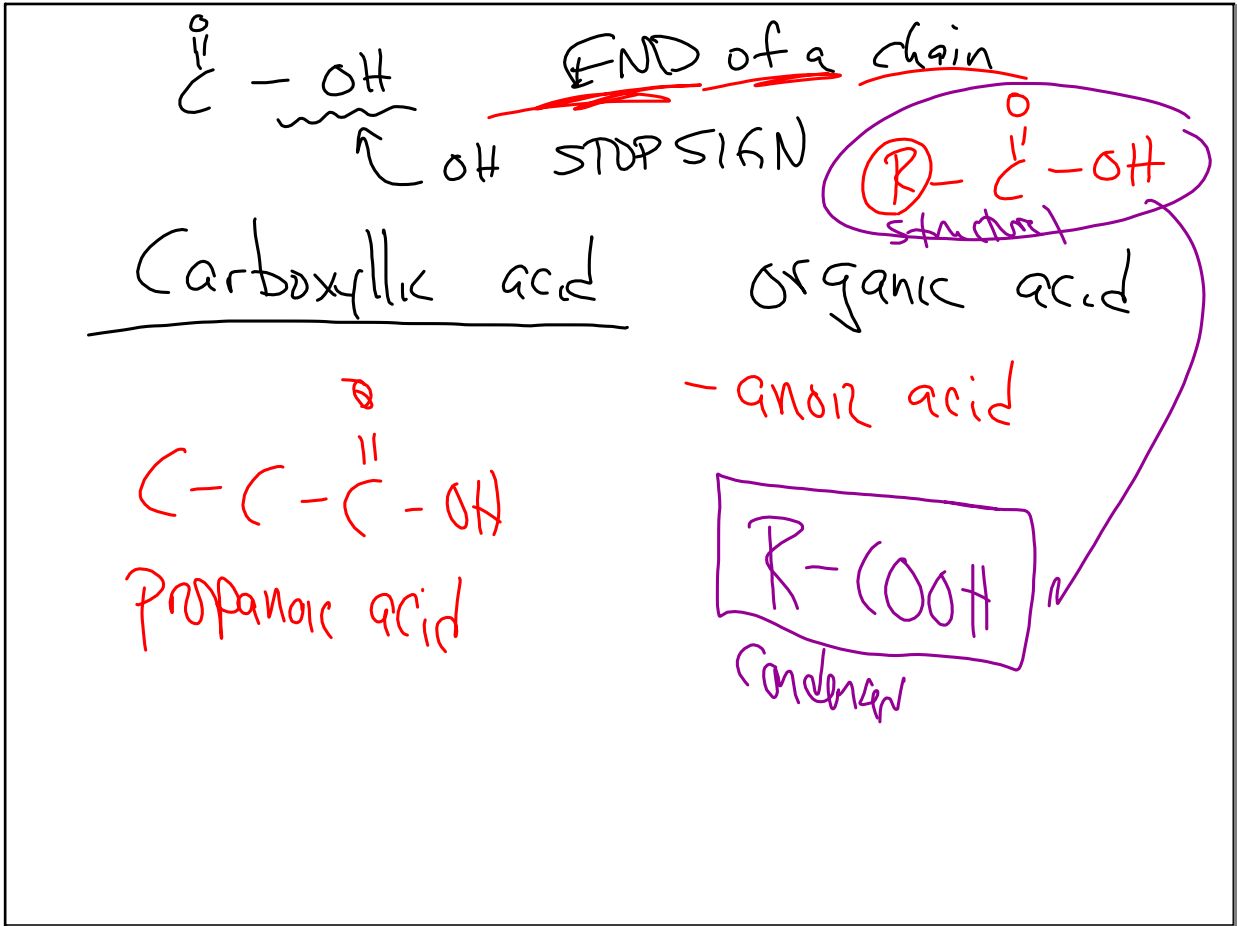 O
||
C - OH
END of a chain
OH STOP SIGN
O
||
R - C - OH
structural
Carboxyllic acid
organic acid
- anoic acid
O
||
C - C - C - OH
propanoic acid
R - COOH
Condensed